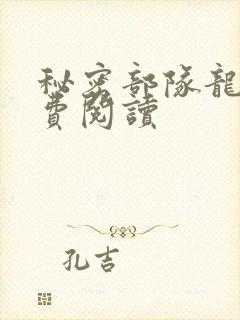 秘密部隊龍
費閱讀
孔吉